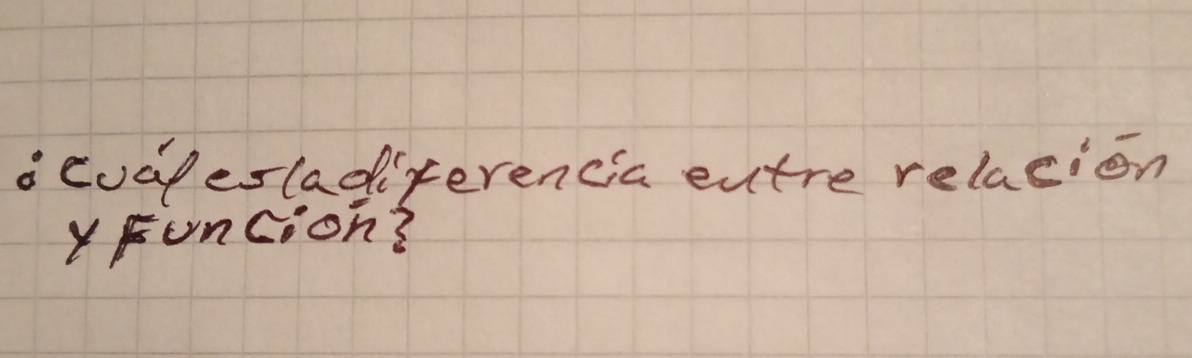 ¿Cuál es la diferencia entre relación
y Función?